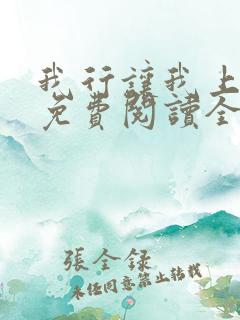 我行讓我上
免費閱讀全
張全録
未經同意禁止轉載